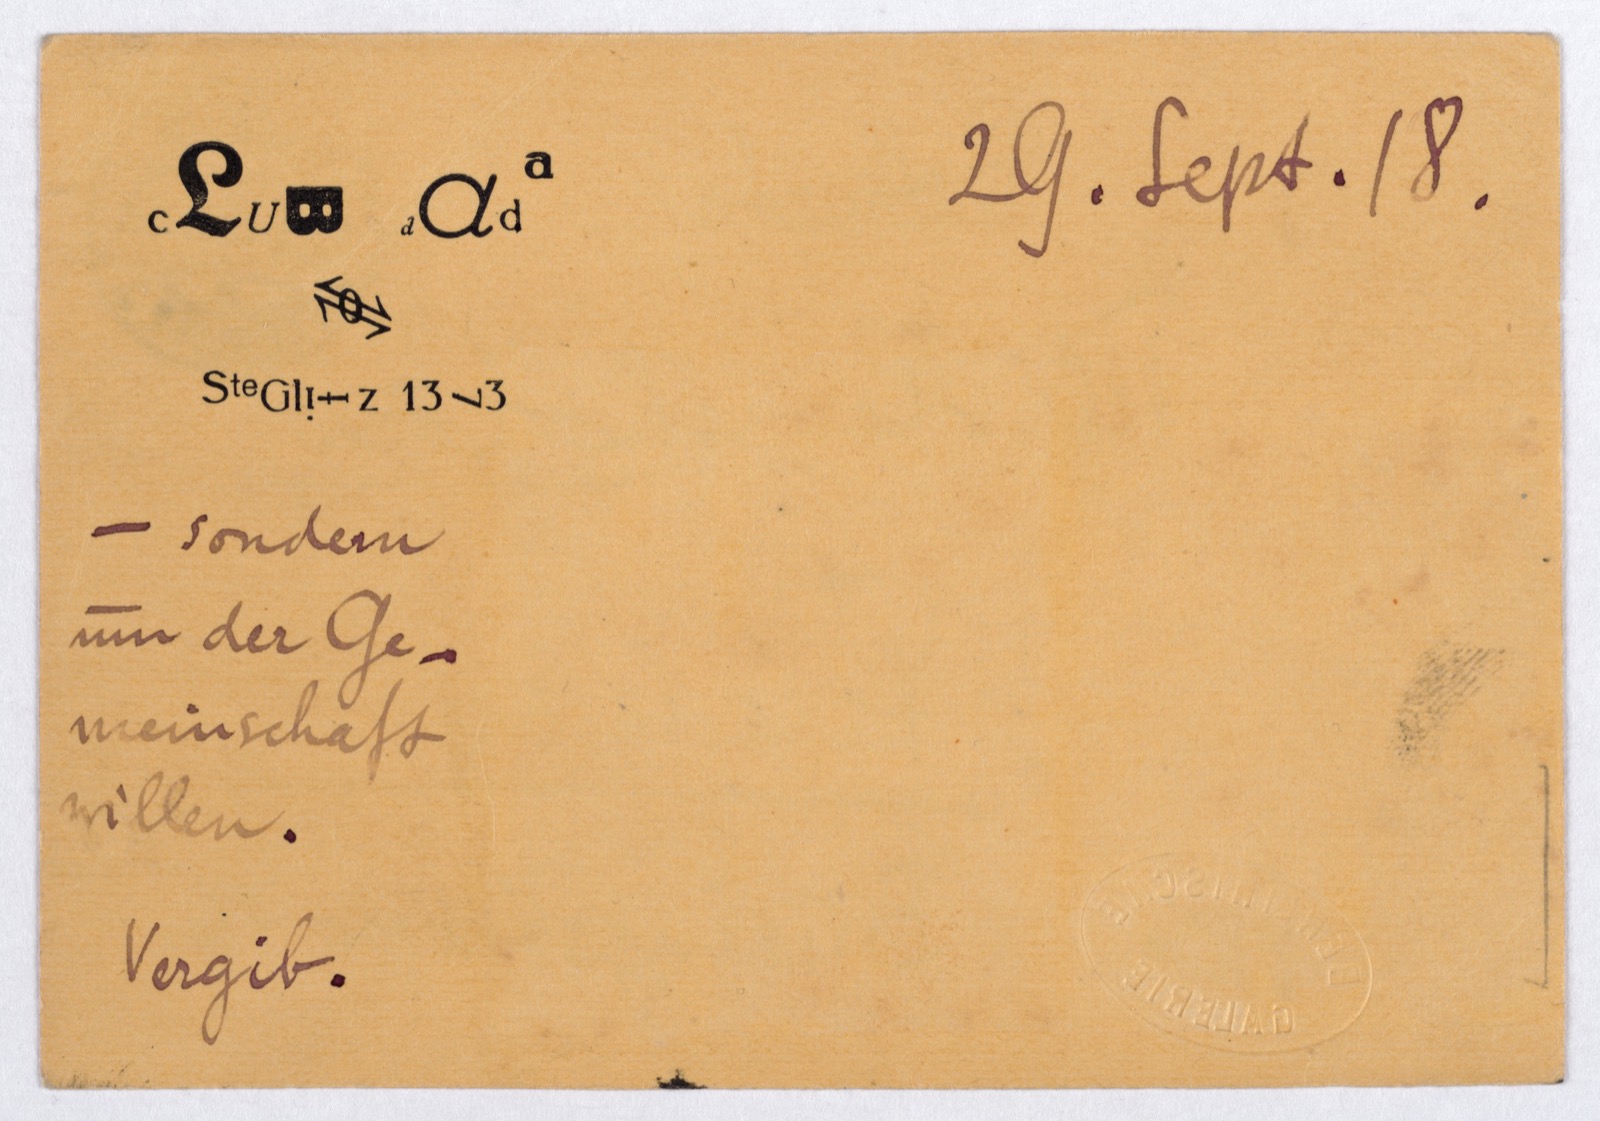 cLUB dAda
Steglitz 1373
29. Sept. 18.
– sondern
um der Ge-
meinschaft
willen.
Vergib.
BERLINISCHE
GALERIE